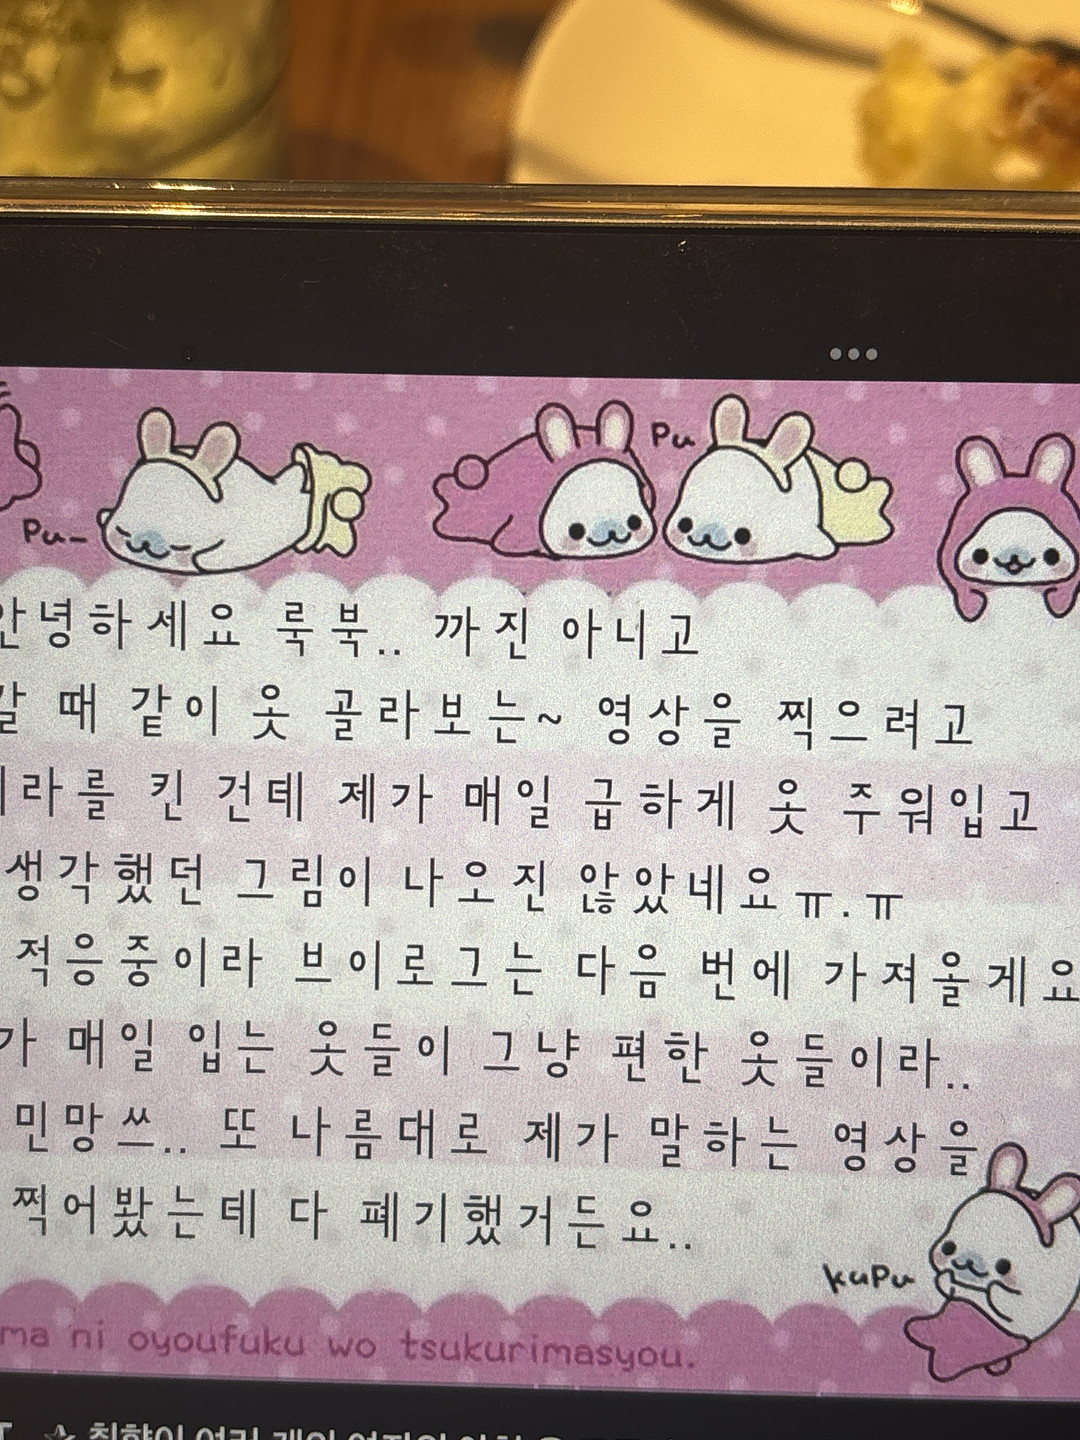 Pu-
Pu
안녕하세요 룩북.. 까진 아니고
갈 때 같이 옷 골라보는~ 영상을 찍으려고
라를 킨 건데 제가 매일 급하게 옷 주워입고
생각했던 그림이 나오진 않았네요ㅠ.ㅠ
적응중이라 브이로그는 다음 번에 가져올게요
가 매일 입는 옷들이 그냥 편한 옷들이라..
민망쓰.. 또 나름대로 제가 말하는 영상을
찍어봤는데 다 폐기했거든요..
kuPu
ma ni oyoufuku wo tsukurimasyou.